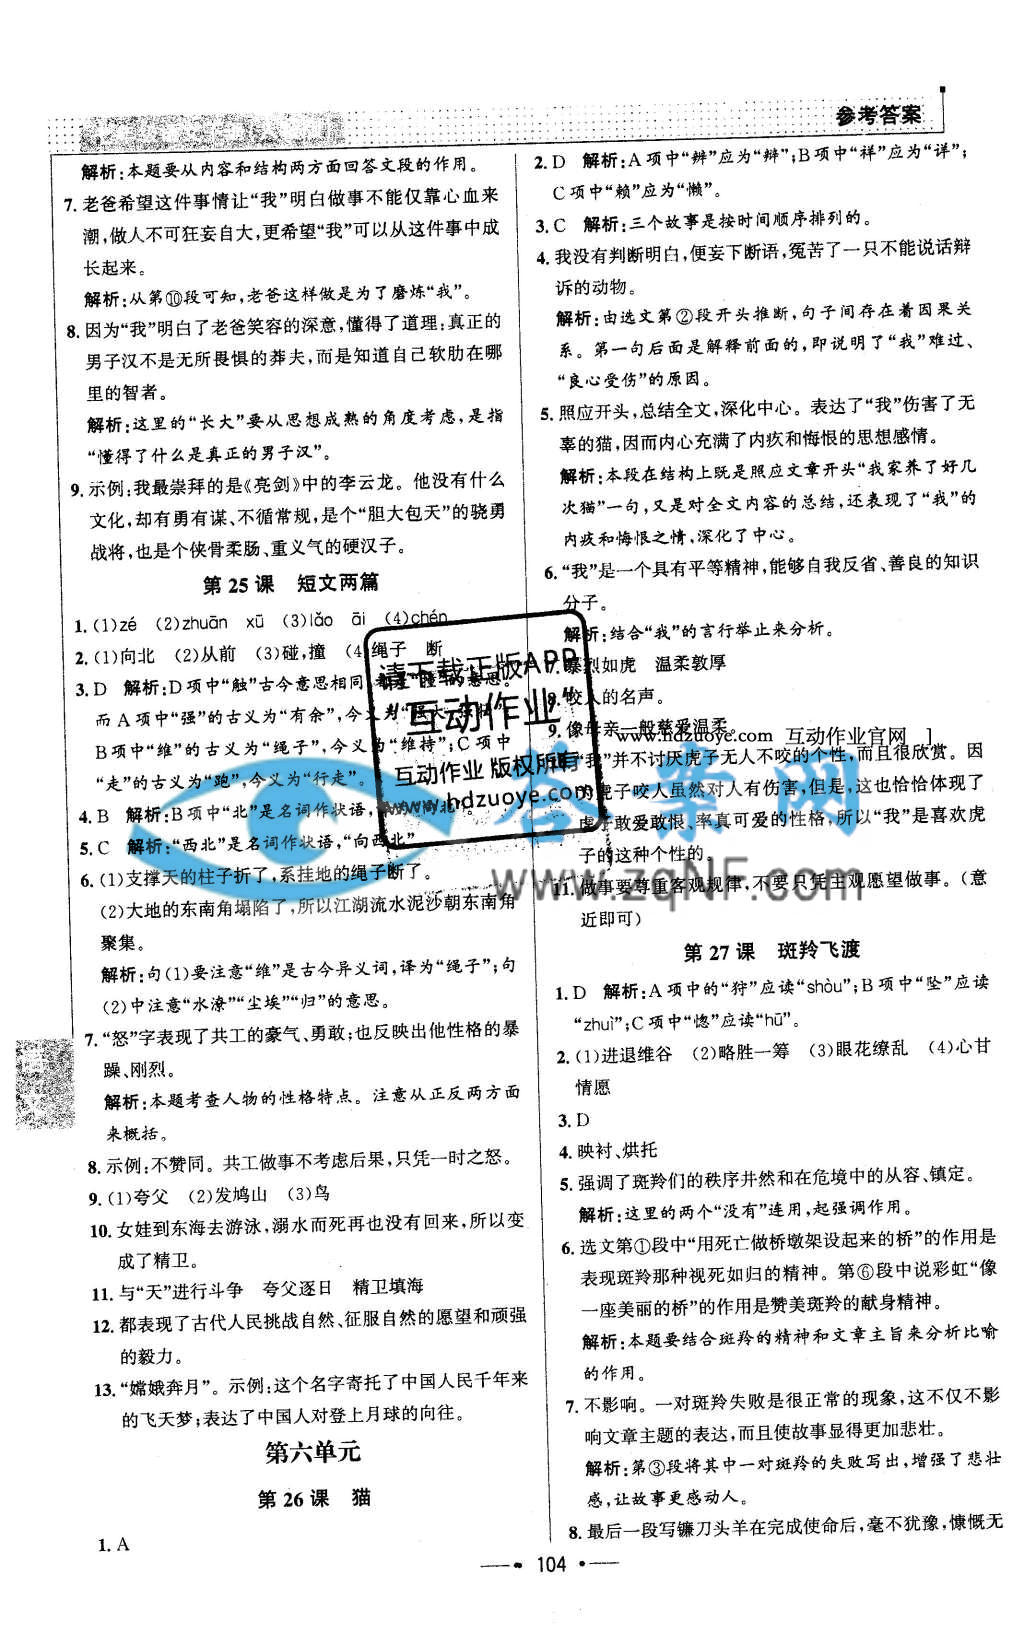 参考答案
解析:本题要从内容和结构两方面回答文段的作用。
7. 老爸希望这件事情让“我”明白做事不能仅靠心血来
潮,做人不可狂妄自大,更希望“我”可以从这件事中成
长起来。
解析:从第⑩段可知,老爸这样做是为了磨炼“我”。
8. 因为“我”明白了老爸笑容的深意,懂得了道理:真正的
男子汉不是无所畏惧的莽夫,而是知道自己软肋在哪
里的智者。
解析:这里的“长大”要从思想成熟的角度考虑,是指
“懂得了什么是真正的男子汉”。
9. 示例:我最崇拜的是《亮剑》中的李云龙。他没有什么
文化,却有勇有谋、不循常规,是个“胆大包天”的骁勇
战将,也是个侠骨柔肠、重义气的硬汉子。
第 25 课 短文两篇
1. (1)zé (2)zhuān xū (3)lǎo āi (4)chén
2. (1)向北 (2)从前 (3)碰,撞 (4)绳子 断
3. D 解析:D项中“触”古今意思相同,都是“撞”的意思。
而 A 项中“强”的古义为“有余”,今义为“强大,强壮”;
B 项中“维”的古义为“绳子”,今义为“维持”;C 项中
“走”的古义为“跑”,今义为“行走”。
4. B 解析:B项中“北”是名词作状语,“向北”。
5. C 解析:“西北”是名词作状语,“向西北”。
6. (1)支撑天的柱子折了,系挂地的绳子断了。
(2)大地的东南角塌陷了,所以江湖流水泥沙朝东南角
聚集。
解析:句(1)要注意“维”是古今异义词,译为“绳子”;句
(2)中注意“水潦”“尘埃”“归”的意思。
7. “怒”字表现了共工的豪气、勇敢;也反映出他性格的暴
躁、刚烈。
解析:本题考查人物的性格特点。注意从正反两方面
来概括。
8. 示例:不赞同。共工做事不考虑后果,只凭一时之怒。
9. (1)夸父 (2)发鸠山 (3)鸟
10. 女娃到东海去游泳,溺水而死再也没有回来,所以变
成了精卫。
11. 与“天”进行斗争 夸父逐日 精卫填海
12. 都表现了古代人民挑战自然、征服自然的愿望和顽强
的毅力。
13. “嫦娥奔月”。示例:这个名字寄托了中国人民千年来
的飞天梦;表达了中国人对登上月球的向往。
第六单元
第 26 课 猫
1. A
2. D 解析:A 项中“辨”应为“辩”;B 项中“祥”应为“详”;
C 项中“赖”应为“懒”。
3. C 解析:三个故事是按时间顺序排列的。
4. 我没有判断明白,便妄下断语,冤苦了一只不能说话辩
诉的动物。
解析:由选文第②段开头推断,句子间存在着因果关
系。第一句后面是解释前面的,即说明了“我”难过、
“良心受伤”的原因。
5. 照应开头,总结全文,深化中心。表达了“我”伤害了无
辜的猫,因而内心充满了内疚和悔恨的思想感情。
解析:本段在结构上既是照应文章开头“我家养了好几
次猫”一句,又是对全文内容的总结,还表现了“我”的
内疚和悔恨之情,深化了中心。
6. “我”是一个具有平等精神,能够自我反省、善良的知识
分子。
解析:结合“我”的言行举止来分析。
7. 暴烈如虎 温柔敦厚
8. 咬人的名声。
9. 像母亲一般慈爱温柔
“我”并不讨厌虎子无人不咬的个性,而且很欣赏。因
的虎子咬人虽然对人有伤害,但是,这也恰恰体现了
虎子敢爱敢恨、率真可爱的性格,所以“我”是喜欢虎
子的这种个性的。
11. 做事要尊重客观规律,不要只凭主观愿望做事。(意
近即可)
第 27 课 斑羚飞渡
1. D 解析:A 项中的“狩”应读“shòu”;B 项中“坠”应读
“zhuì”;C项中“惚”应读“hū”。
2. (1)进退维谷 (2)略胜一筹 (3)眼花缭乱 (4)心甘
情愿
3. D
4. 映衬、烘托
5. 强调了斑羚们的秩序井然和在危境中的从容、镇定。
解析:这里的两个“没有”连用,起强调作用。
6. 选文第①段中“用死亡做桥墩架设起来的桥”的作用是
表现斑羚那种视死如归的精神。第⑥段中说彩虹“像
一座美丽的桥”的作用是赞美斑羚的献身精神。
解析:本题要结合斑羚的精神和文章主旨来分析比喻
的作用。
7. 不影响。一对斑羚失败是很正常的现象,这不仅不影
响文章主题的表达,而且使故事显得更加悲壮。
解析:第③段将其中一对斑羚的失败写出,增强了悲壮
感,让故事更感动人。
8. 最后一段写镰刀头羊在完成使命后,毫不犹豫,慷慨无
104
请下载正版APP
“互动作业”
互动作业 版权所有
www.hdzuoye.com
www.hdzuoye.com 互动作业官网
答案网
www.zqNF.com